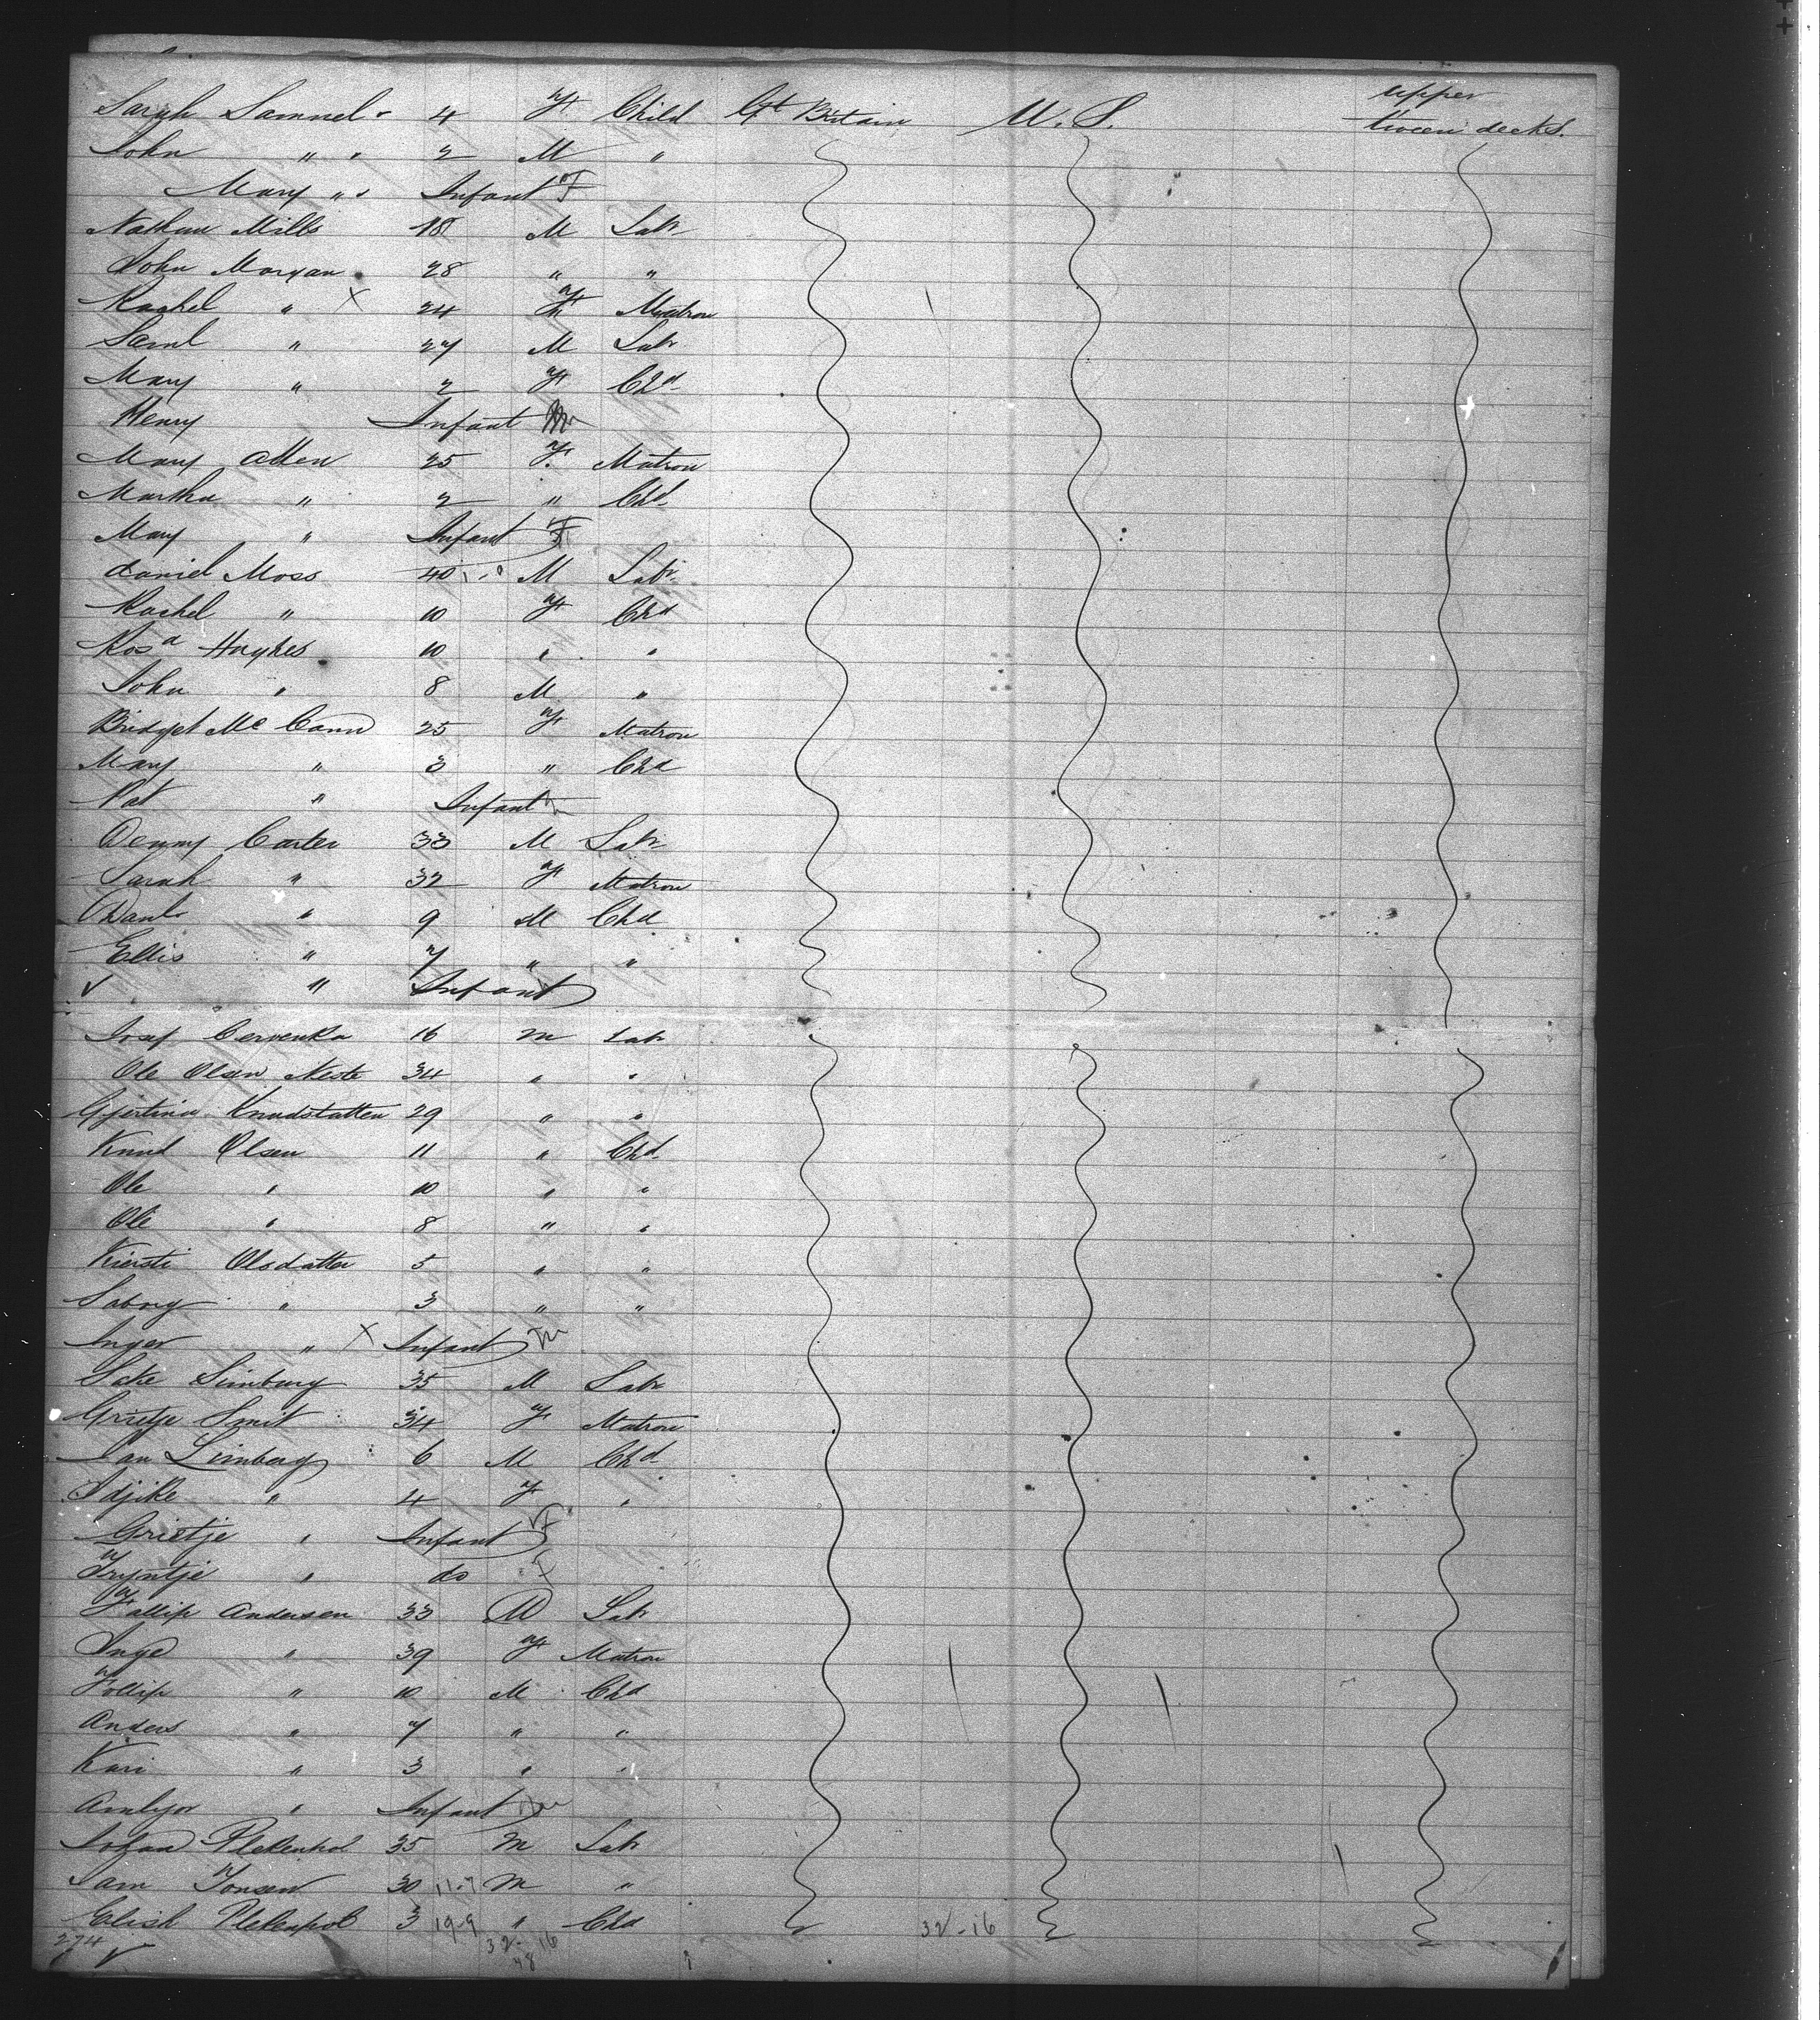 Sarah Samuel 4 F Child Gt Britain U. S. upper 'tween decks.
John " 2 M "
Mary " Infant F
Nathan Mills 18 M Labr
John Morgan 28 " "
Rachel " X 24 F Matron
Saml " 27 M Labr
Mary " 2 F Chd
Henry Infant M
Mary Allen 25 F. Matron
Martha " 2 " Chd
Mary " Infant F
Daniel Moss 40 M Labr
Rachel " 10 F Chd
Rosa Hughes 10 " "
John " 8 M "
Bridget Mc Cann 25 F Matron
Mary " 3 " Chd
Pat " Infant
Denny Carter 33 M Labr
Sarah " 32 F Matron
Danl " 9 M Chd
Ellis " 7 " "
" Infant
Josef Cervenka 16 M Labr
Ole Olsen Neste 34 " "
Gjertina Knudstatten 29 " "
Knud Olsen 11 " Chd
Ole " 10 " "
Ole " 8 " "
Kiersti Olsdatter 5 " "
" 3 " "
Inger " X Infant
Limburg 35 M Labr
Grietje Smit 34 F Matron
Jan Limburg 6 M Chd
" 4 F "
Grietje " Infant F
Tryntje " do F
Follip Andersen 33 M Labr
Inge " 39 F Matron
Follip " 10 M Chd
Anders " 7 " "
Kari " 3 " "
" Infant
Plekenpol 35 M Labr
Jonsen 30 11-7 M "
Plekenpol 3 19-9 " Chd 32-16
274 32-16
48